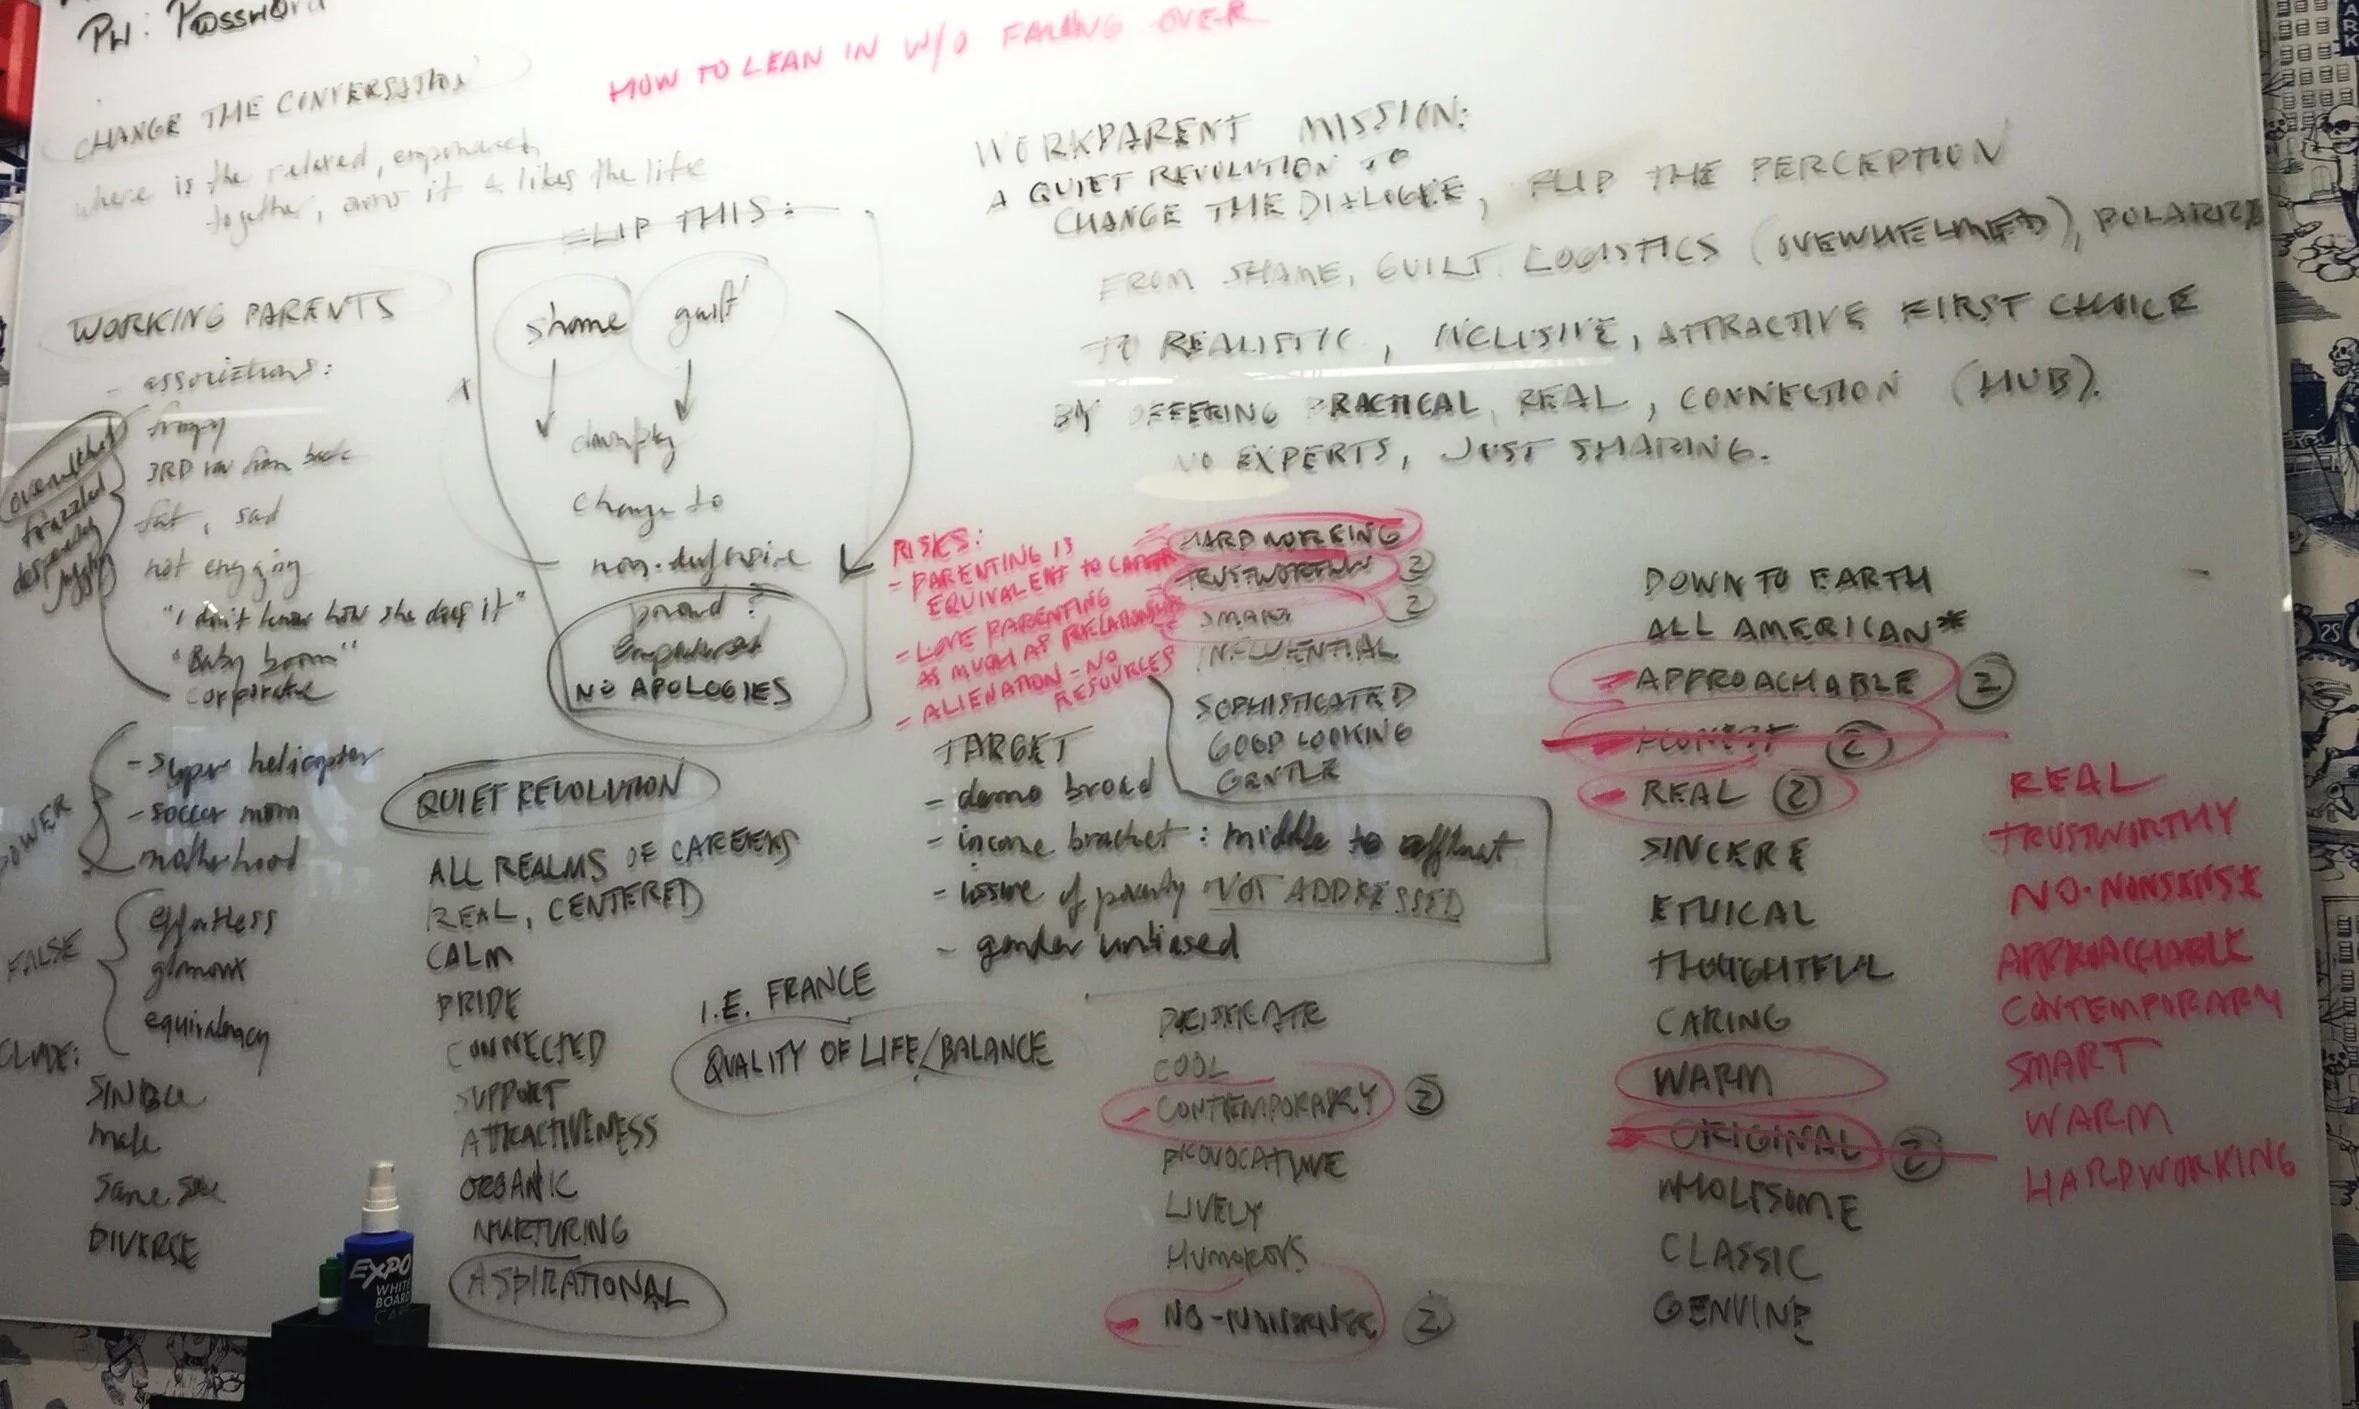 PW: Password
HOW TO LEAN IN W/O FALLING OVER
CHANGE THE CONVERSATION
where is the relaxed,
together, owns it & likes the life
WORKING PARENTS
- associations:
3RD row from back
fat, sad
not engaging
"I don't know how she does it"
"Baby boom"
corporate
overwhelmed
frazzled
desperately
juggling
POWER
- super helicopter
- soccer mom
- motherhood
FALSE
effortless
equivalency
CLUDE:
SINGLE
male
same sex
DIVERSE
FLIP THIS:
shame guilt
downplay
change to
non-defensive
proud?
empowered
NO APOLOGIES
QUIET REVOLUTION
ALL REALMS OF CAREERS
REAL, CENTERED
CALM
PRIDE
CONNECTED
SUPPORT
ATTRACTIVENESS
ORGANIC
NURTURING
ASPIRATIONAL
I.E. FRANCE
QUALITY OF LIFE/BALANCE
WORKPARENT MISSION:
A QUIET REVOLUTION TO
CHANGE THE DIALOGUE, FLIP THE PERCEPTION
FROM SHAME, GUILT, LOGISTICS (OVEWHELMED), POLARIZE
TO REALISTIC, INCLUSIVE, ATTRACTIVE FIRST CHOICE
BY OFFERING PRACTICAL, REAL, CONNECTION (HUB).
NO EXPERTS, JUST SHARING.
RISKS:
- PARENTING IS
EQUIVALENT TO CAREER
- LOVE PARENTING
AS MUCH AS RELATIONSHIPS
- ALIENATION - NO
RESOURCES
TARGET
- demo broad
- income bracket: middle to affluent
- issue of poverty NOT ADDRESSED
- gender unbiased
HARDWORKING
TRUSTWORTHY 2
SMART 2
INFLUENTIAL
SOPHISTICATED
GOOD LOOKING
GENTLE
COOL
CONTEMPORARY 2
PROVOCATIVE
LIVELY
HUMOROUS
NO-NONSENSE 2
DOWN TO EARTH
ALL AMERICAN*
APPROACHABLE 2
HONEST 2
REAL 2
SINCERE
ETHICAL
THOUGHTFUL
CARING
WARM
ORIGINAL 2
WHOLESOME
CLASSIC
GENUINE
REAL
TRUSTWORTHY
NO-NONSENSE
APPROACHABLE
CONTEMPORARY
SMART
WARM
HARDWORKING
EXPO
WHITE
BOARD
CARE
ARK
25